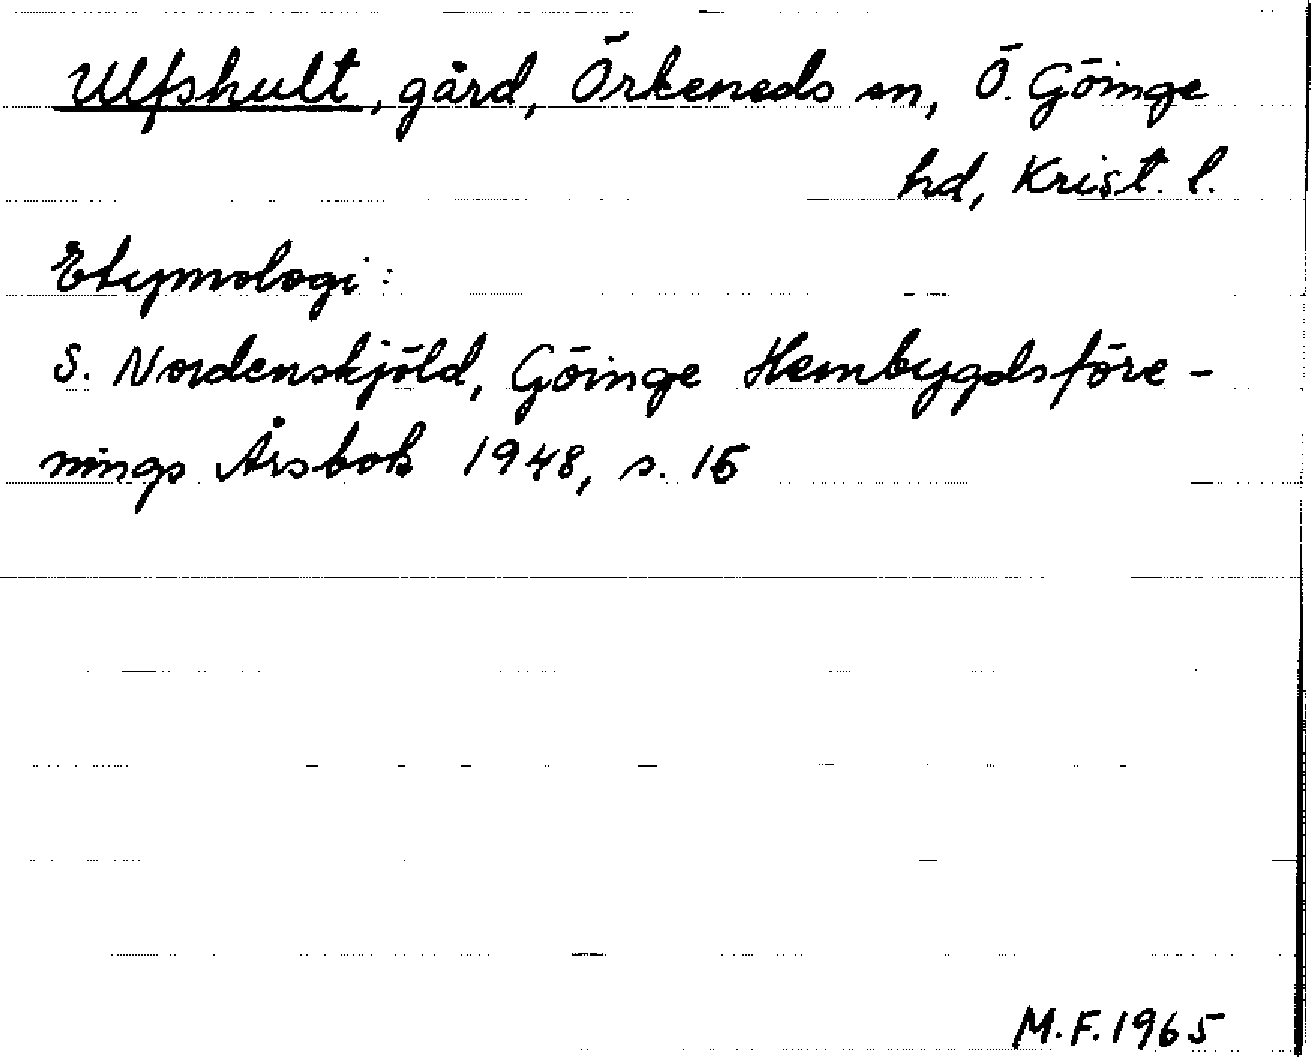 Ulfshult, gård, Örkeneds sn, Ö. Göinge
hd, Krist. l.
Etymologi:
S. Nordenskjöld, Göinge Hembygdsföre-
nings Årsbok 1948, s. 15
M.F.1965